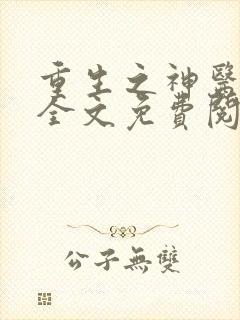 重生之神醫
全文免費閱
公子無雙